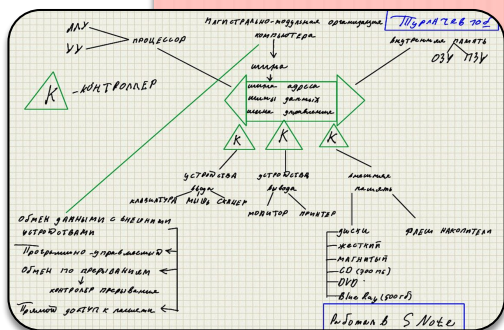 Магистрально-модульная организация
компьютера
Тургачев 10д
АЛУ
УУ
процессор
внутренняя память
ОЗУ ПЗУ
шина
шина адреса
шины данных
шина управления
К
-контроллер
К
К
К
устройства
ввода
клавиатура мышь сканер
устройства
вывода
монитор принтер
внешняя
память
диски
жесткий
магнитый
CD (700 мб)
DVD
Blue Ray (500гб)
флеш накопители
Обмен данными с внешними
устройствами
Программно-управляемый
Обмен по прерываниям
контролер прерывания
Прямой доступ к памяти
Работал в S Note